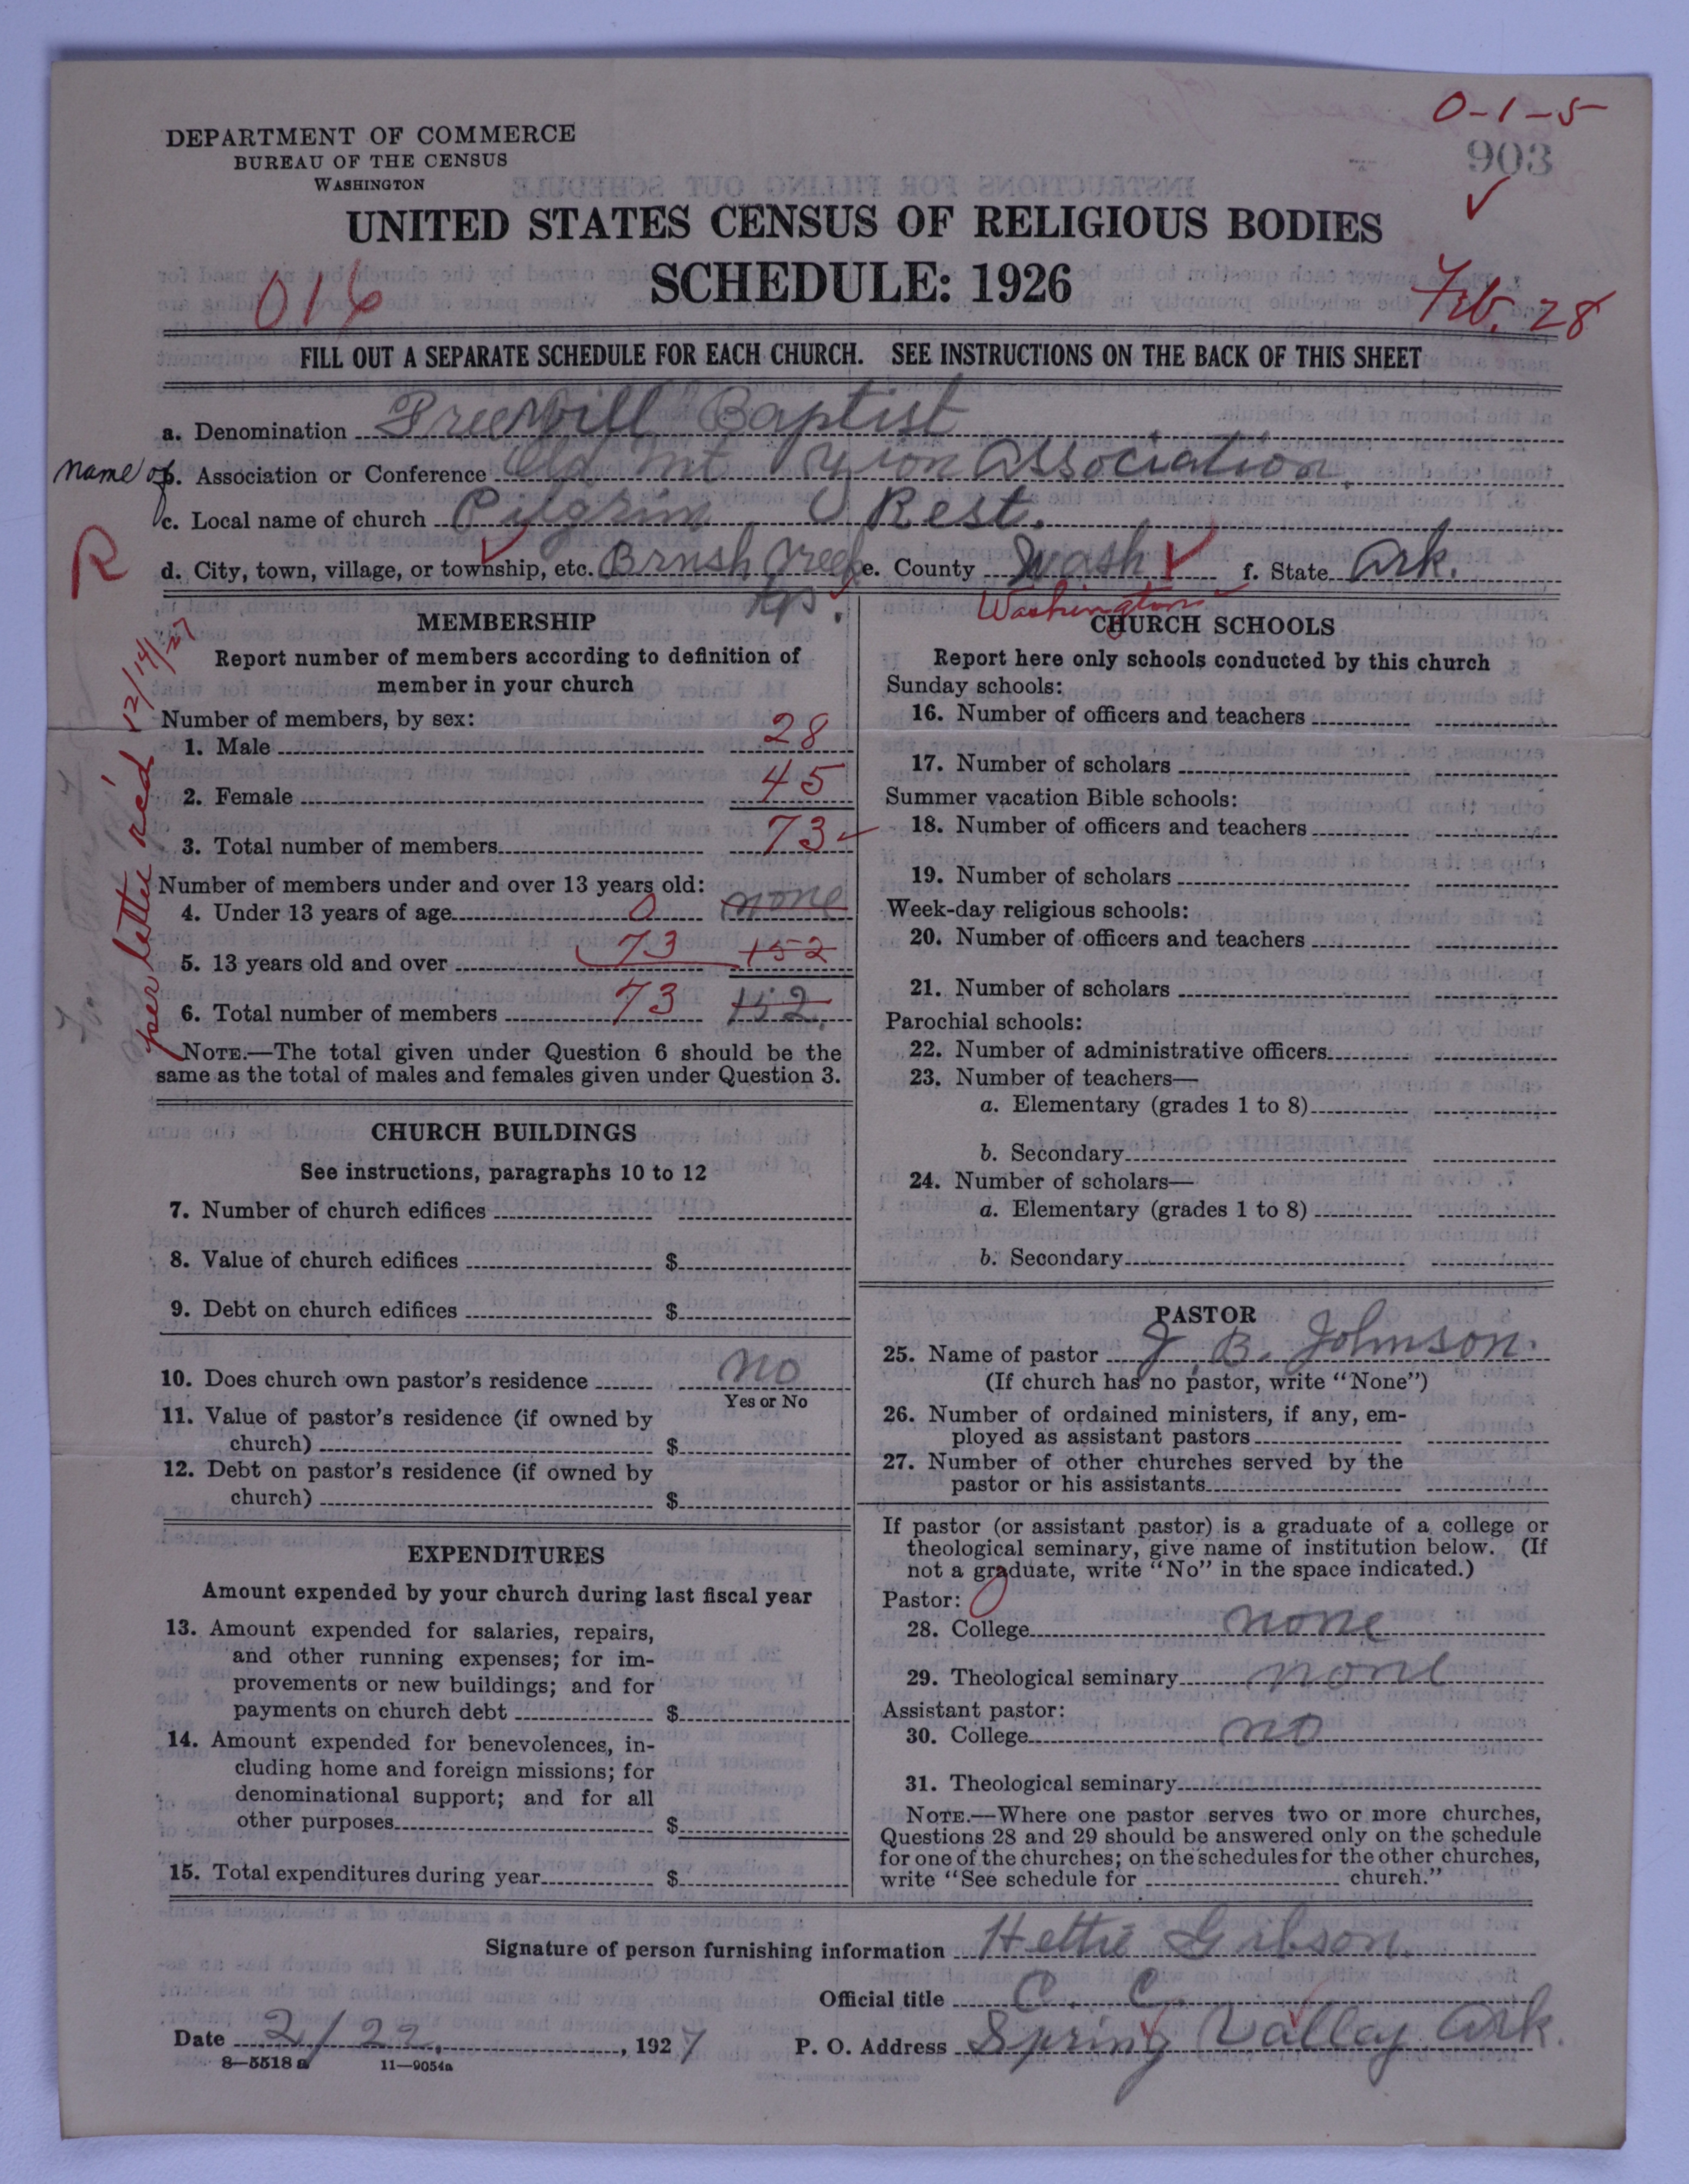 0-1-5
DEPARTMENT OF COMMERCE
BUREAU OF THE CENSUS
WASHINGTON
903
UNITED STATES CENSUS OF RELIGIOUS BODIES
SCHEDULE: 1926
016
Feb. 28
FILL OUT A SEPARATE SCHEDULE FOR EACH CHURCH. SEE INSTRUCTIONS ON THE BACK OF THIS SHEET
a. Denomination Free Will Baptist
name of b. Association or Conference Old Mt Association
c. Local name of church Pilgrim Rest.
R
d. City, town, village, or township, etc. Brush Creek tp. e. County Wash f. State Ark.
Washington
per letter rec'd 12/14/27
MEMBERSHIP
Report number of members according to definition of
member in your church
Number of members, by sex:
1. Male 28
2. Female 45
3. Total number of members 73
Number of members under and over 13 years old:
4. Under 13 years of age 0 none
5. 13 years old and over 73 152
6. Total number of members 73 152
NOTE.—The total given under Question 6 should be the
same as the total of males and females given under Question 3.
CHURCH BUILDINGS
See instructions, paragraphs 10 to 12
7. Number of church edifices
8. Value of church edifices $
9. Debt on church edifices $
10. Does church own pastor's residence no
Yes or No
11. Value of pastor's residence (if owned by
church) $
12. Debt on pastor's residence (if owned by
church) $
EXPENDITURES
Amount expended by your church during last fiscal year
13. Amount expended for salaries, repairs,
and other running expenses; for im-
provements or new buildings; and for
payments on church debt $
14. Amount expended for benevolences, in-
cluding home and foreign missions; for
denominational support; and for all
other purposes $
15. Total expenditures during year $
CHURCH SCHOOLS
Report here only schools conducted by this church
Sunday schools:
16. Number of officers and teachers
17. Number of scholars
Summer vacation Bible schools:
18. Number of officers and teachers
19. Number of scholars
Week-day religious schools:
20. Number of officers and teachers
21. Number of scholars
Parochial schools:
22. Number of administrative officers
23. Number of teachers—
a. Elementary (grades 1 to 8)
b. Secondary
24. Number of scholars—
a. Elementary (grades 1 to 8)
b. Secondary
PASTOR
25. Name of pastor J. B. Johnson.
(If church has no pastor, write "None")
26. Number of ordained ministers, if any, em-
ployed as assistant pastors
27. Number of other churches served by the
pastor or his assistants
If pastor (or assistant pastor) is a graduate of a college or
theological seminary, give name of institution below. (If
not a graduate, write "No" in the space indicated.)
Pastor:
28. College none
29. Theological seminary none
Assistant pastor:
30. College no
31. Theological seminary
NOTE.—Where one pastor serves two or more churches,
Questions 28 and 29 should be answered only on the schedule
for one of the churches; on the schedules for the other churches,
write "See schedule for church."
Signature of person furnishing information Hettie Gibson.
Official title C. C.
Date 2/22, 1927 P. O. Address Spring Valley Ark.
8—5518a 11—9054a